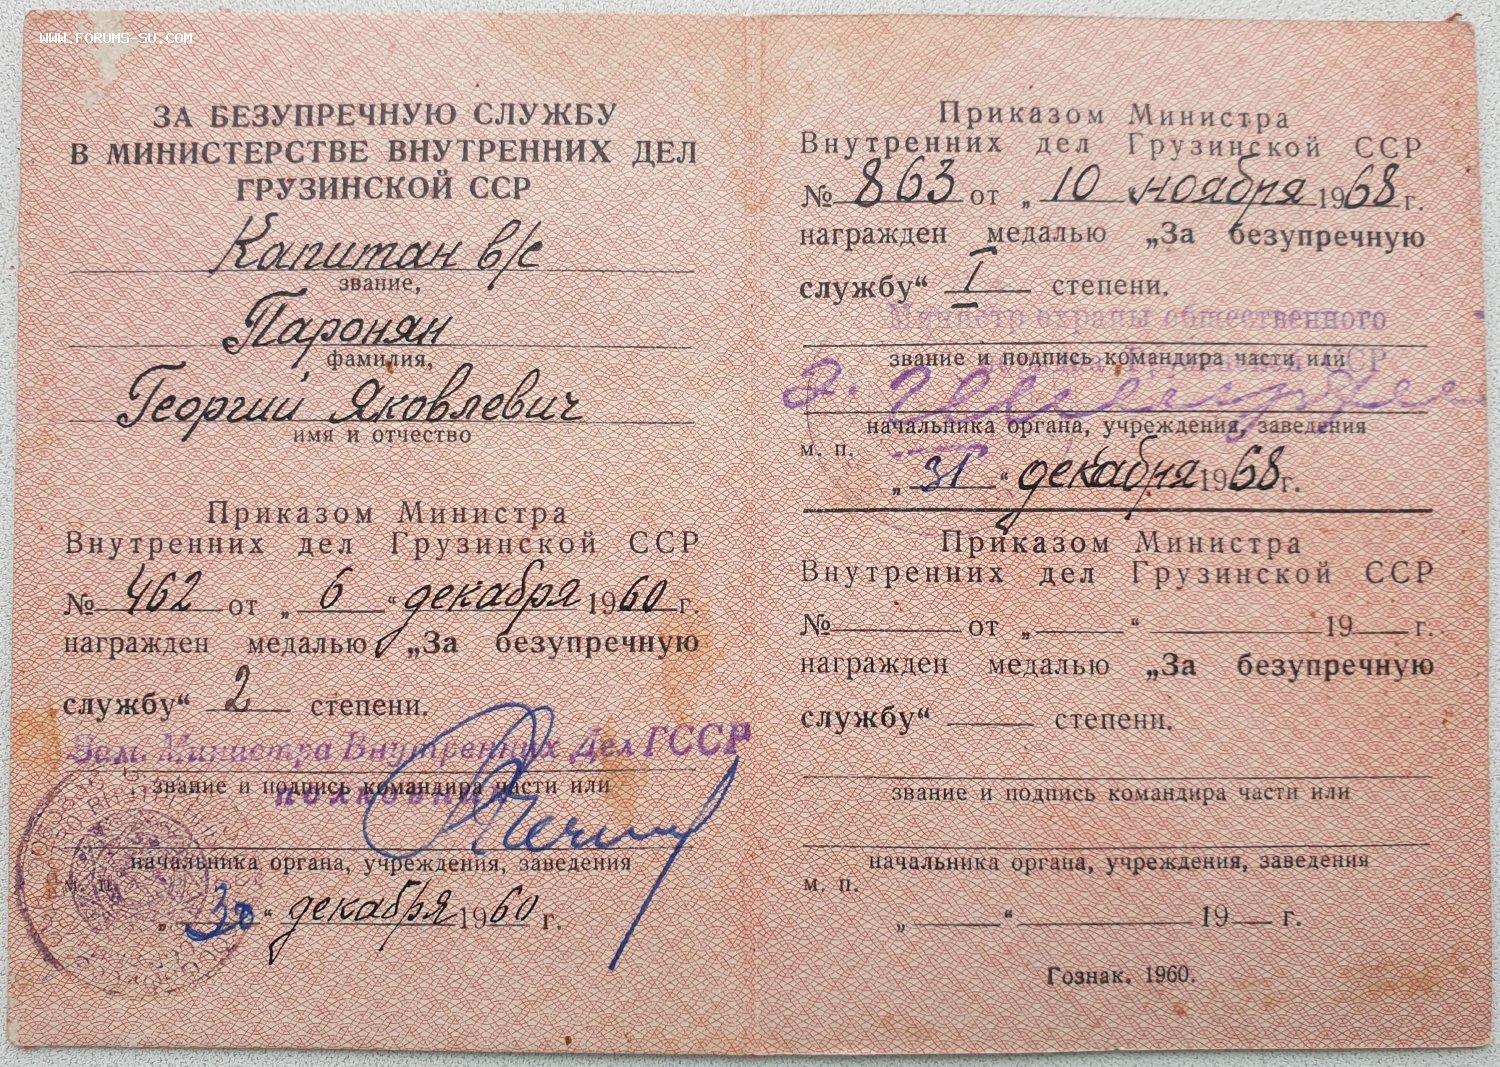 WWW.FORUMS-SU.COM
ЗА БЕЗУПРЕЧНУЮ СЛУЖБУ
В МИНИСТЕРСТВЕ ВНУТРЕННИХ ДЕЛ
ГРУЗИНСКОЙ ССР
Капитан в/с
звание,
Паронян
фамилия,
Георгий Яковлевич
имя и отчество
Приказом Министра
Внутренних дел Грузинской ССР
№ 462 от „ 6 “ декабря 1960 г.
награжден медалью „За безупречную
службу“ 2 степени.
Зам. Министра Внутренних Дел ГССР
звание и подпись командира части или
полковник
начальника органа, учреждения, заведения
м. п.
„ 30 “ декабря 1960 г.
Приказом Министра
Внутренних дел Грузинской ССР
№ 863 от „ 10 “ ноября 1968 г.
награжден медалью „За безупречную
службу“ I степени.
Министр охраны общественного
звание и подпись командира части или
ССР
начальника органа, учреждения, заведения
м. п.
„ 31 “ декабря 1968 г.
Приказом Министра
Внутренних дел Грузинской ССР
№ от „ “ 19 г.
награжден медалью „За безупречную
службу“ степени.
звание и подпись командира части или
начальника органа, учреждения, заведения
м. п.
„ “ 19 г.
Гознак. 1960.